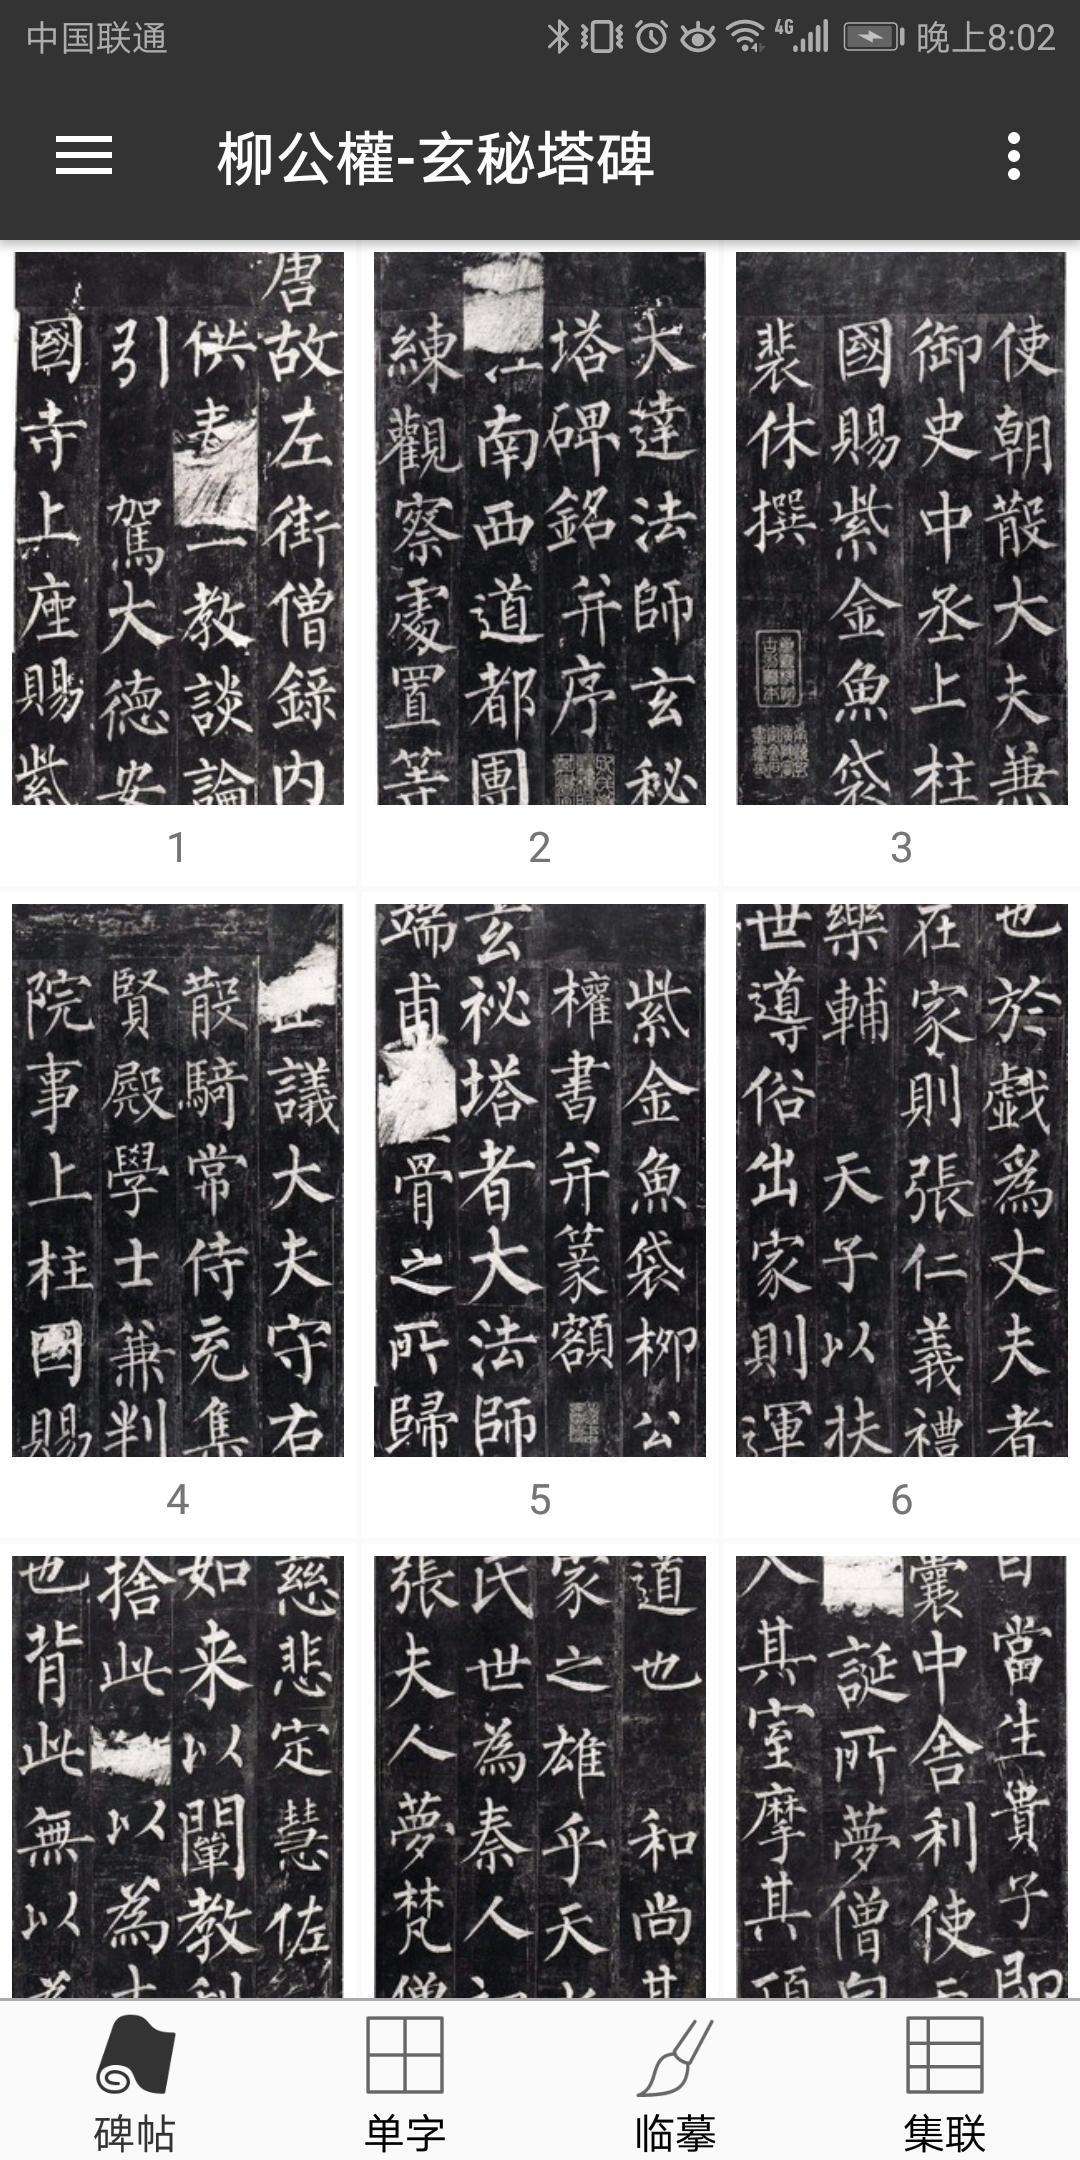 中国联通
4G
晚上8:02
柳公權-玄秘塔碑
唐故左街僧錄内
供表一教談論
引駕大德安
國寺上座賜紫
1
大達法師玄秘
塔碑銘并序
江南西道都團
練觀察處置等
2
使朝散大夫兼
御史中丞上柱
國賜紫金魚袋
裴休撰
3
正議大夫守右
散騎常侍充集
賢殿學士兼判
院事上柱國賜
4
紫金魚袋柳公
權書并篆額
玄祕塔者大法師
端甫骨之所歸
5
也於戲為丈夫者
在家則張仁義禮
樂輔天子以扶
世導俗出家則運
6
慈悲定慧佐
如来以闡教利
捨此以為
也背此無以
道也和尚其
家之雄乎天
氏世為秦人
張夫人夢梵僧
曰當生貴子即
囊中舍利使
誕所夢僧白
入其室摩其頂
碑帖
单字
临摹
集联